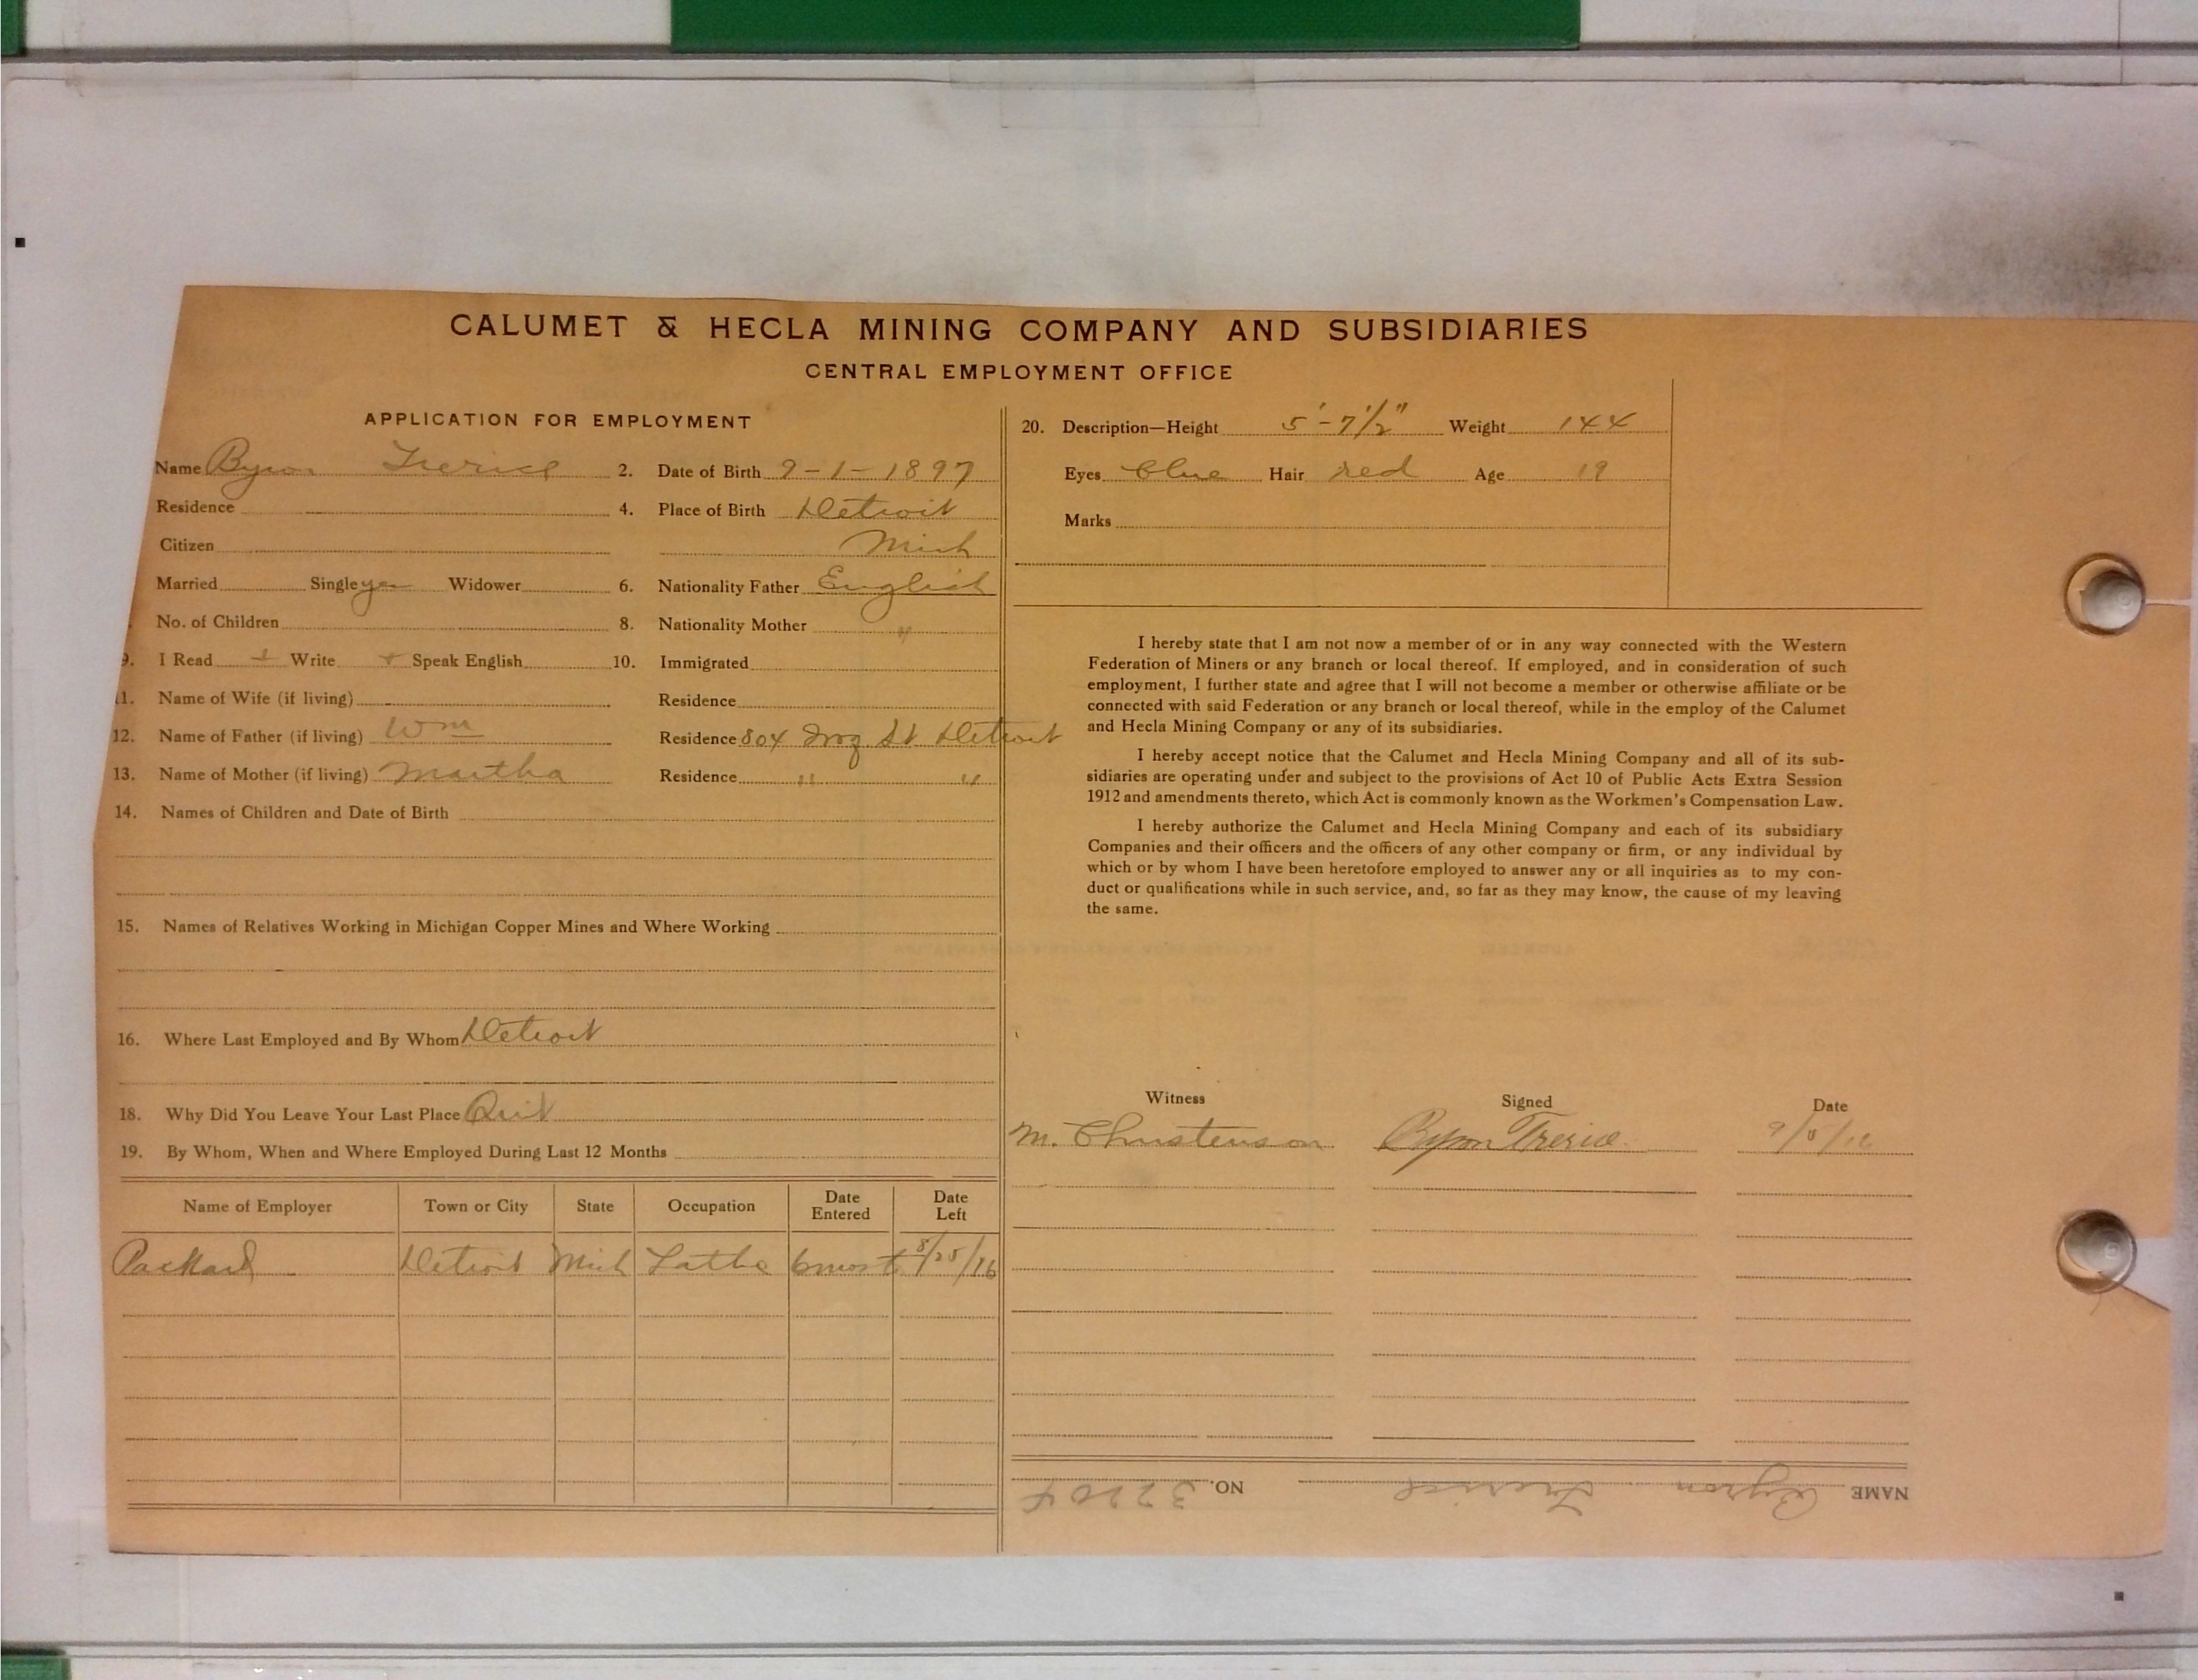 CALUMET & HECLA MINING COMPANY AND SUBSIDIARIES
CENTRAL EMPLOYMENT OFFICE
APPLICATION FOR EMPLOYMENT
Name Byron Trerice 2. Date of Birth 9-1-1897
Residence 4. Place of Birth Detroit
Citizen Mich
Married Single yes Widower 6. Nationality Father English
No. of Children 8. Nationality Mother "
9. I Read Write Speak English 10. Immigrated
11. Name of Wife (if living) Residence
12. Name of Father (if living) Wm Residence 804 St Detroit
13. Name of Mother (if living) Martha Residence " "
14. Names of Children and Date of Birth
15. Names of Relatives Working in Michigan Copper Mines and Where Working
16. Where Last Employed and By Whom Detroit
18. Why Did You Leave Your Last Place Quit
19. By Whom, When and Where Employed During Last 12 Months
Name of Employer Town or City State Occupation Date Entered Date Left
Packard Detroit Mich Lathe 6 mos t 8/25/16
20. Description—Height 5'-7 1/2" Weight 144
Eyes blue Hair red Age 19
Marks
I hereby state that I am not now a member of or in any way connected with the Western
Federation of Miners or any branch or local thereof. If employed, and in consideration of such
employment, I further state and agree that I will not become a member or otherwise affiliate or be
connected with said Federation or any branch or local thereof, while in the employ of the Calumet
and Hecla Mining Company or any of its subsidiaries.
I hereby accept notice that the Calumet and Hecla Mining Company and all of its sub-
sidiaries are operating under and subject to the provisions of Act 10 of Public Acts Extra Session
1912 and amendments thereto, which Act is commonly known as the Workmen's Compensation Law.
I hereby authorize the Calumet and Hecla Mining Company and each of its subsidiary
Companies and their officers and the officers of any other company or firm, or any individual by
which or by whom I have been heretofore employed to answer any or all inquiries as to my con-
duct or qualifications while in such service, and, so far as they may know, the cause of my leaving
the same.
Witness Signed Date
M. Christenson Byron Trerice 9/5/16
NAME Byron Trerice NO. 32204